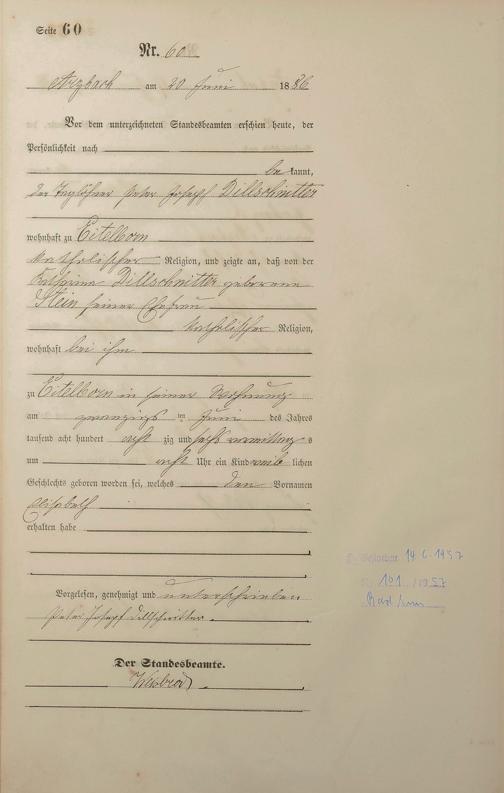 Seite 60
Nr. 60
Arzbach am 20 Juni 1886
Vor dem unterzeichneten Standesbeamten erschien heute, der
Persönlichkeit nach
bekannt,
der Taglöhner Peter Joseph Dillschnitter
wohnhaft zu Eitelborn
katholischer Religion, und zeigte an, daß von der
Katharina Dillschnitter geborene
Stein seiner Ehefrau
katholischer Religion,
wohnhaft bei ihm
zu Eitelborn in seiner Wohnung
am zwanzigs ten Juni des Jahres
tausend acht hundert acht zig und sechs vormittag s
um acht Uhr ein Kind weib lichen
Geschlechts geboren worden sei, welches den Vornamen
Elisabeth
erhalten habe
Vorgelesen, genehmigt und unterschrieben
Peter Joseph Dillschnitter.
Der Standesbeamte.
Gestorben 14.6.1957
101 / 1957
Bad Ems